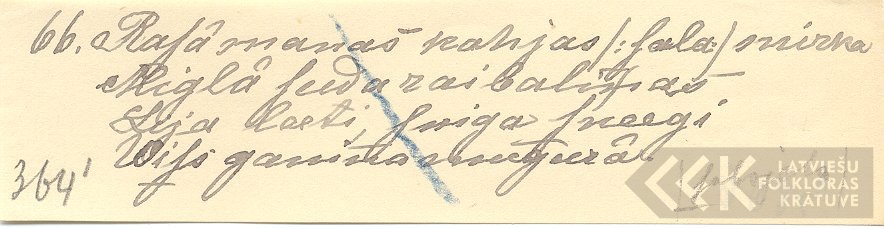 66. Rasâ manas kahjas /:sala:/ mirka
Miglâ suda raibaliņas
Lija leeti, sniga sneegi
Wiss ganiņa mugurâ.
364'
LATVIEŠU
FOLKLORAS
KRĀTUVE